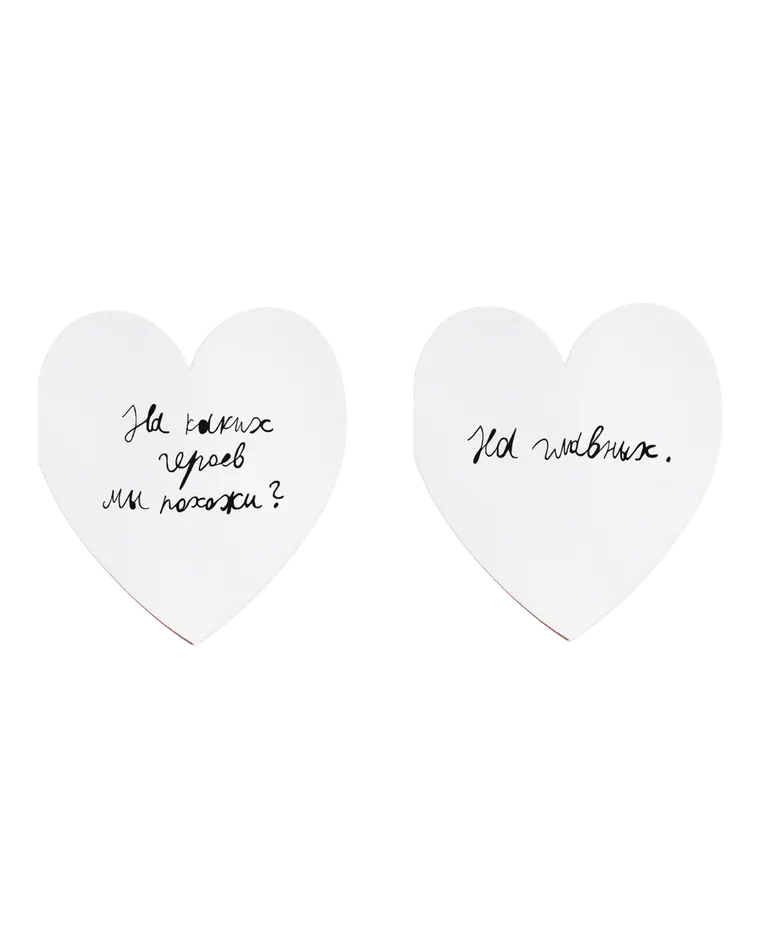 На каких
героев
мы похожи?
На главных.